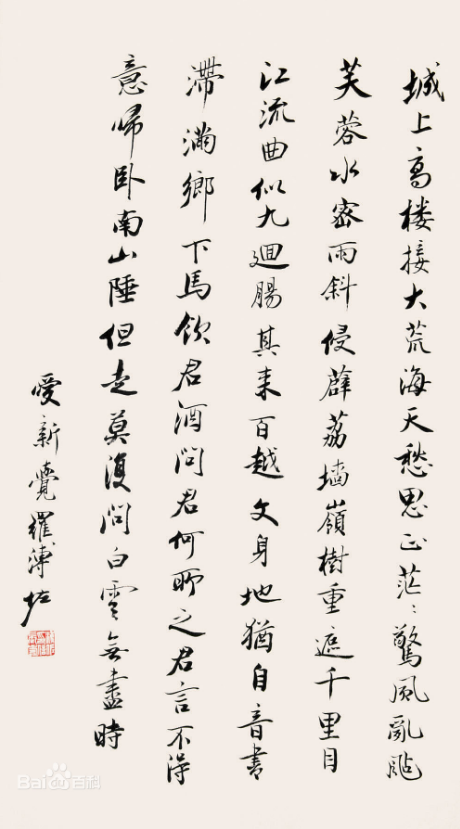 城上高楼接大荒海天愁思正茫〻驚風亂颭
芙蓉水密雨斜侵薜荔墙嶺樹重遮千里目
江流曲似九廻腸其来百越文身地猶自音書
滯滿鄉下馬飲君酒問君何所之君言不得
意歸卧南山陲但去莫復問白雲無盡時
愛新覺羅溥佐
Bai百科